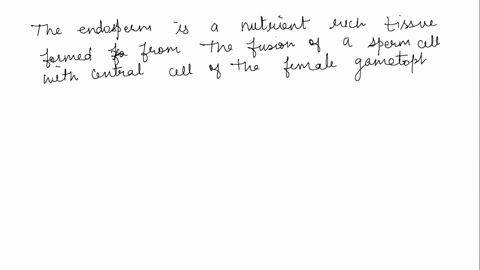 The endosperm is a nutrient rich tissue
formed from the fusion of a sperm cell
with central cell of the female gametoph